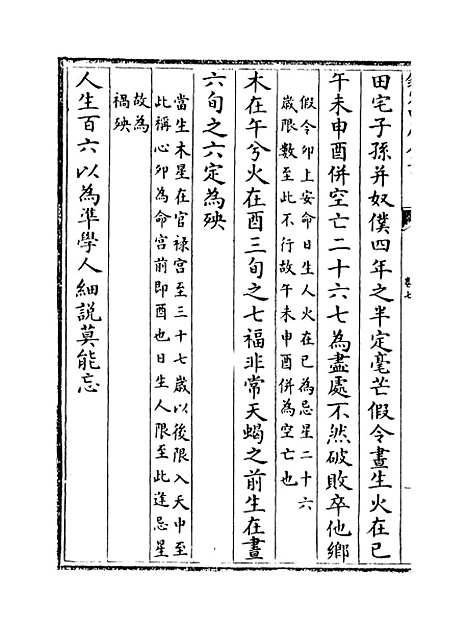 卷七
田宅子孫并奴僕四年之半定毫芒假令晝生火在巳
午未申酉併空亡二十六七為盡處不然破敗卒他鄉
假令卯上安命日生人火在巳為忌星二十六
歲限數至此不行故午未申酉併為空亡也
木在午兮火在酉三旬之七福非常天蝎之前生在晝
六旬之六定為殃
當生木星在官祿宮至三十七歲以後限入天中至
此稱心卯為命宮前即酉也日生人限至此逢忌星
故為
禍殃
人生百六以為準學人細說莫能忘